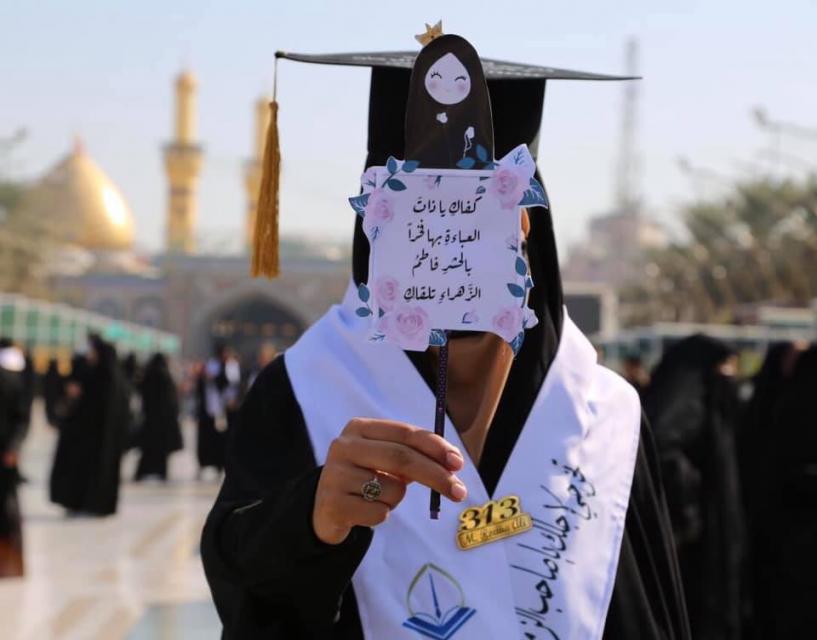 كفاكِ يا ذاتَ
العباءةِ بها فخراً
بالحشرِ فاطمُ
الزَّهراءِ تلقاكِ
313
تخرجي لأجلك يا صاحب الز